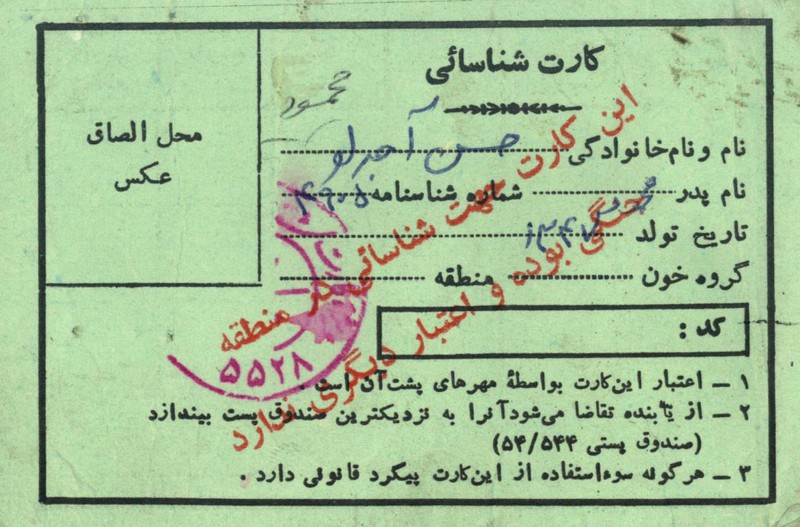 کارت شناسائی
محمود
محل الصاق
عکس
نام و نام‌خانوادگی حسن آجرلو
نام پدر شماره شناسنامه
تاریخ تولد ۱۳۴۲
گروه خون منطقه
کد :
این کارت جهت شناسائی در منطقه
جنگی بوده و اعتبار دیگری ندارد
۵۵۲۸
۱ – اعتبار این‌کارت بواسطهٔ مهرهای پشت‌آن است .
۲ – از یابنده تقاضا می‌شود آنرا به نزدیکترین صندوق پست بیندازد
(صندوق پستی ۵۴/۵۴۴)
۳ – هرگونه سوءاستفاده از این‌کارت پیگرد قانونی دارد .